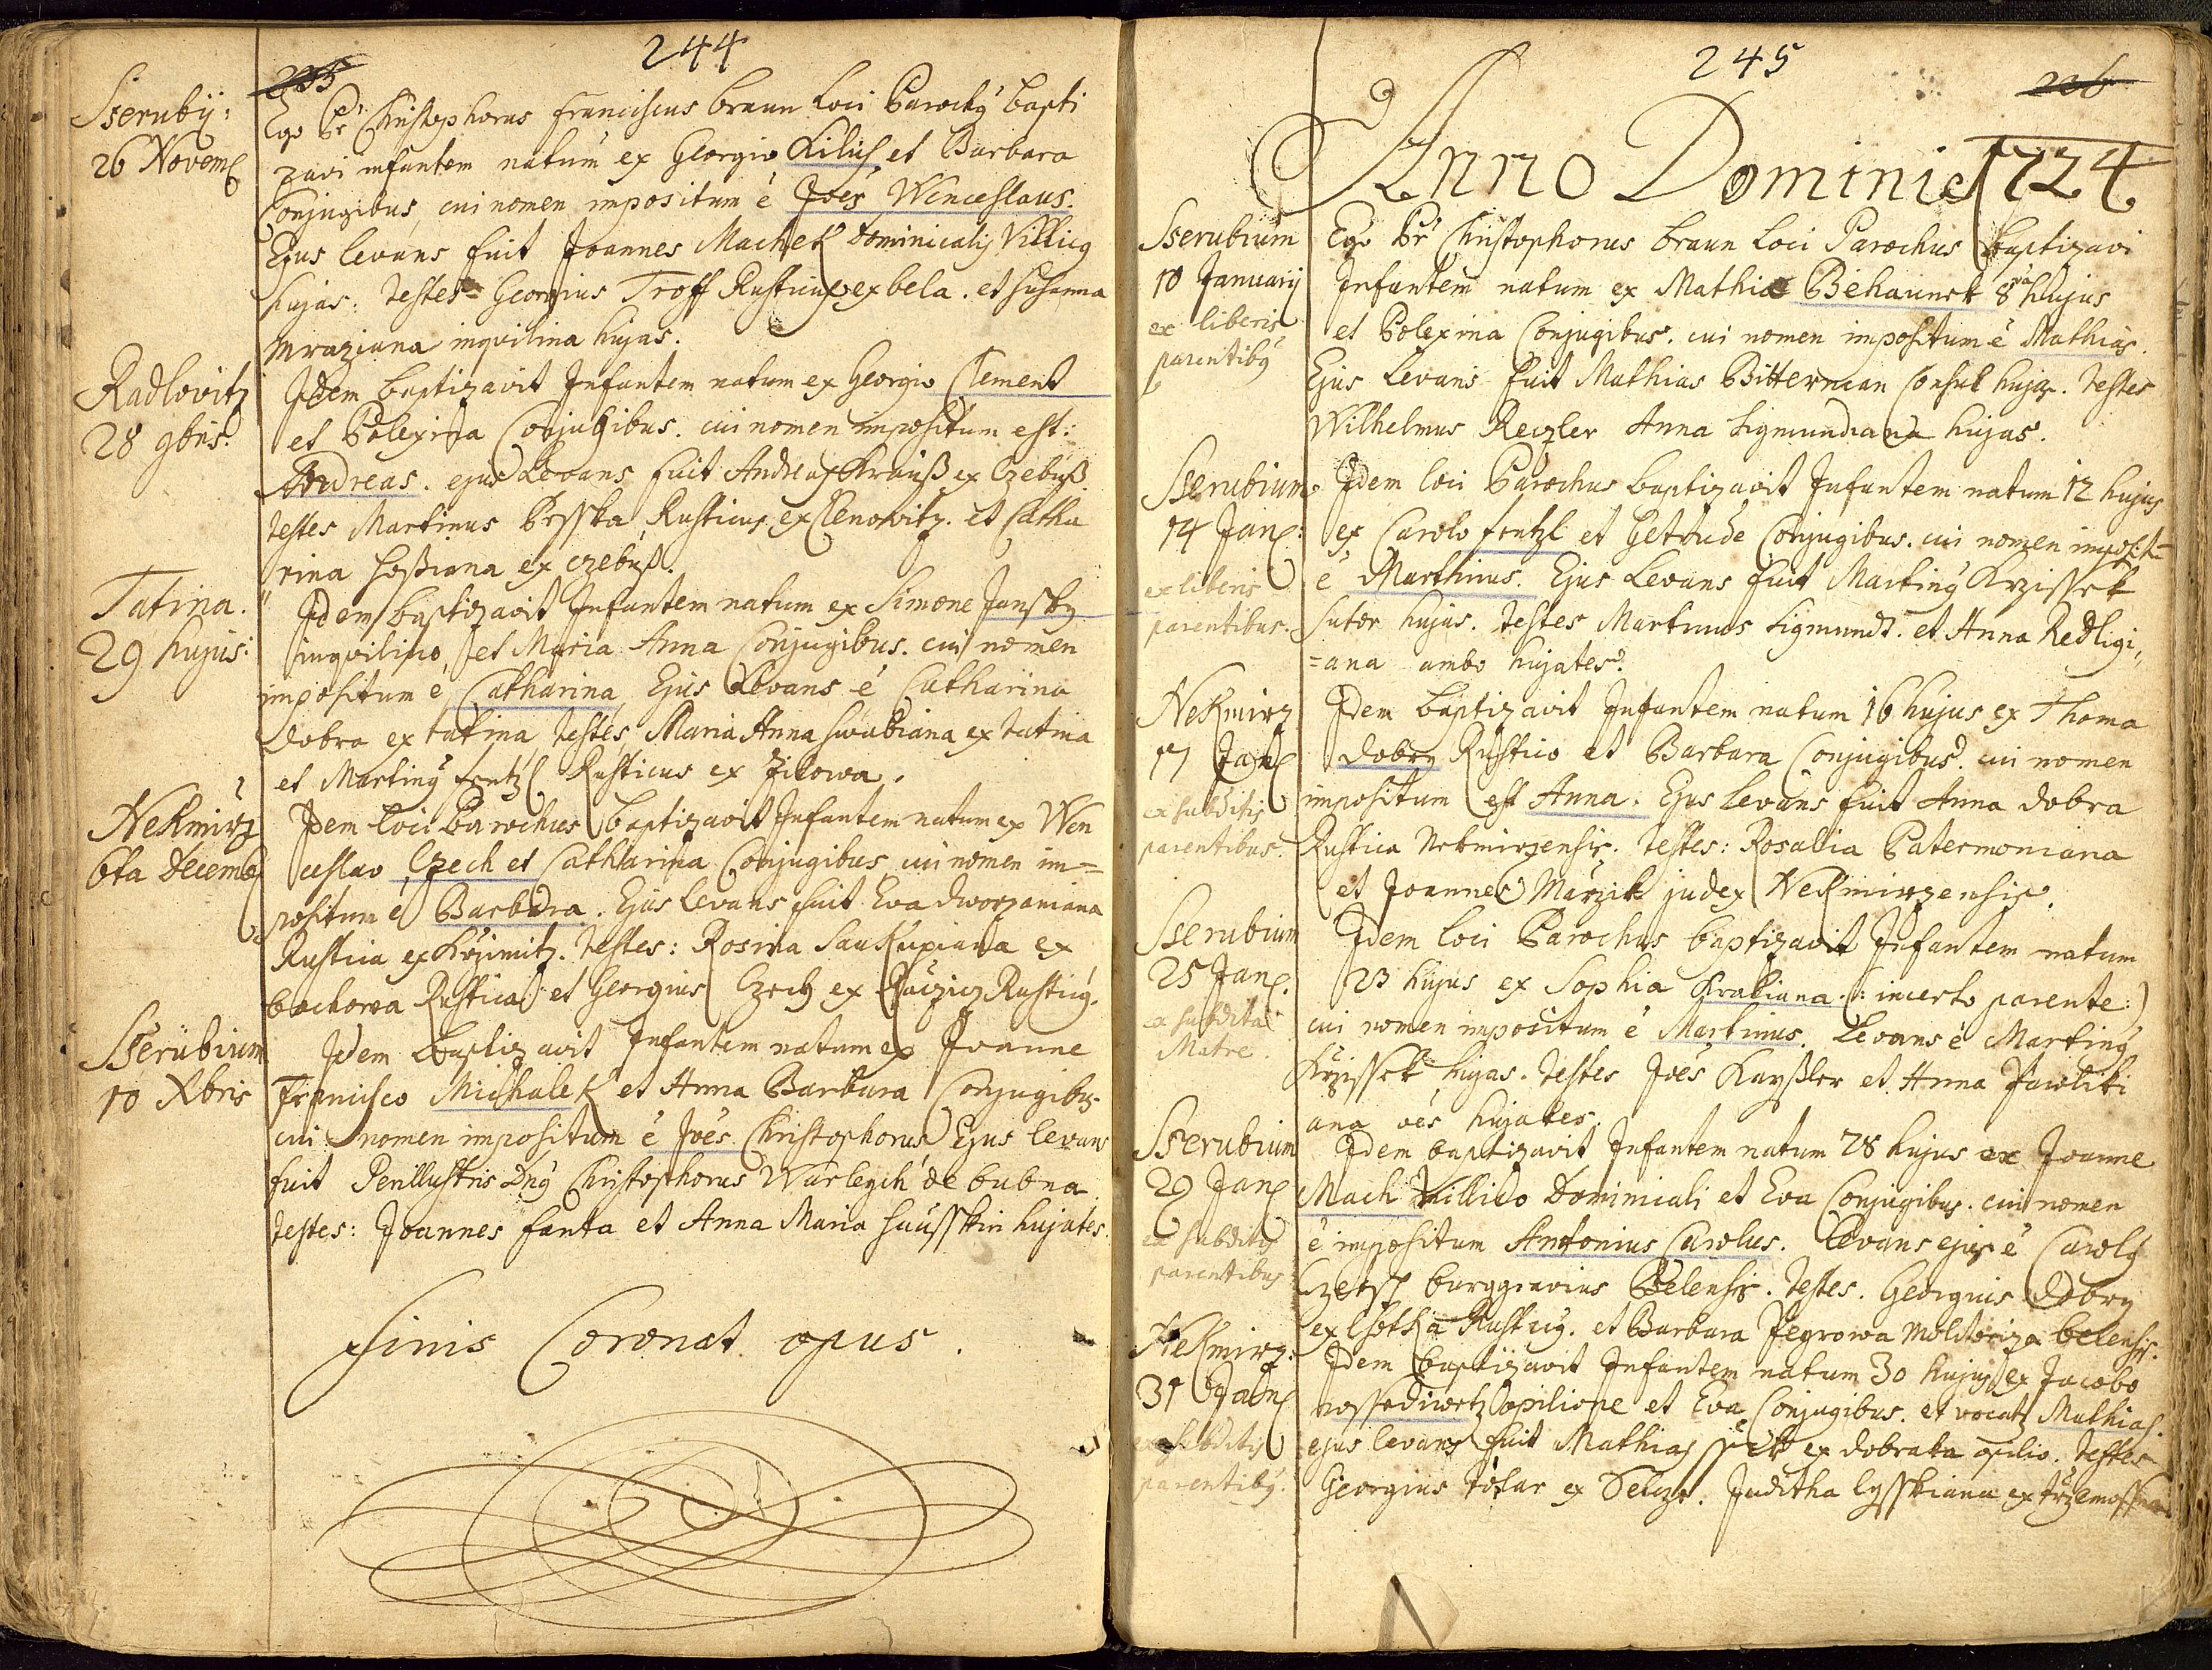 244
235
Sserubÿ:
26 Novem
Ego Pr Christophorus Franciscus Braun Loci Parochus bapti
zavi infantem natum ex Georgio Kilius et Barbara
Conjugibus, cui nomen impositum è Joes Wenceslaus.
Ejus levans fuit Joannes Machek Dominicalis Villicus
hujas. testes Georgius Troff Rusticus ex bela. et Susanna
Mraziana inquilina hujas.
Radlovitz
28 9bris:
Idem baptizavit Infantem natum ex Georgio Clement
et Polexina Conjugibus. cui nomen impositum est:
Andreas. ejus Levans fuit Andreas Krauß ex Czebuß
testes Martinus Rusticus ex et Catha
rina ex czebuß.
Tatina.
29 hujus:
Idem baptizavit Infantem natum ex Simone Jansky
inquilino, et Maria Anna Conjugibus. cui nomen
impositum è Catharina, Ejus Levans è Catharina
dobra ex tatina, testes Maria Anna swabiana ex tatina
et Martinus Rusticus ex Zilowa.
Nekmirz
6ta Decemb
Idem loci Parochus baptizavit Infantem natum ex Wen
ceslao Czech et Catharina Conjugibus, cui nomen im=
positum è Barbara. Ejus levans fuit Eva dworzaniana
Rustica ex Krzimitz. testes: Rosina Saukupiana ex
bachowa Rustica et Georgius Czech ex Rusticus.
Sserubium
10 Xbris
Idem baptizavit Infantem natum ex Joanne
Francisco Michalek et Anna Barbara Conjugibus
cui nomen impositum è Joes Christophorus Ejus levans
fuit Perillustris Dnus Christophorus de bubna
testes: Joannes fanta et Anna Maria hujates.
Finis Coronat opus.
245
236
Anno Domini 1724
Sserubium
10 Januarij
ex liberis
parentibus
Ego Pr Christophorus Braun Loci Parochus baptizavi
Infantem natum ex Mathia Behaunek 8va hujus
et Polexina Conjugibus. cui nomen impositum è Mathias.
Ejus Levans fuit Mathias Bitterman Consul hujas. testes
Wilhelmus Rezler Anna Sigmundiana hujas.
Sserubium
14 Jan:
ex liberis
parentibus.
Idem loci Parochus baptizavit Infantem natum 12 hujus
ex Carolo frentzl et Getrude Conjugibus. cui nomen imposit=
è Marthinus. Ejus Levans fuit Martinus Krzissek
sutor hujas. testes Martinus Sigmundt. et Anna Redligi,,
=ana ambo hujates.
Nekmirz
17 Jan
ex subditis
parentibus.
Idem baptizavit Infantem natum 16 hujus ex Thoma
dobry Rustico et Barbara Conjugibus. cui nomen
impositum est Anna. Ejus levans fuit Anna dobra
Rustica Nekmirzensis. testes: Rosalia Patermoniana
et Joannes Marzik judex Nekmirzensis.
Sserubium
25 Jan.
ex subdita
Matre.
Idem loci Parochus baptizavit Infantem natum
23 hujus ex Sophia Krabiana (: incerto parente:)
cui nomen impositum è Martinus. Levans è Martinus
Krzissek hujas. testes Joes Kayßler et Anna Pawliti
ana oes hujates.
Sserubium
29 Jan
ex subditis
parentibus
Idem baptizavit Infantem natum 28 hujus ex Joanne
Mach Villico Dominicali et Eva Conjugibus. cui nomen
è impositum Antonius Carolus. Levans ejus è Carolus
burggravius Belensis. testes. Georgius dobry
ex Lhotka Rusticus. et Barbara Jegrowa Molitoriza belensis.
Nekmirz:
31 Jan
ex subditis
parentibus.
Idem baptizavit Infantem natum 30 hujus ex Jacobo
opilione et Eva Conjugibus. et vocatus Mathias.
ejus levans fuit Mathias ssèk ex dobratka opilio. testes
Georgius ex Juditha lysskiana ex